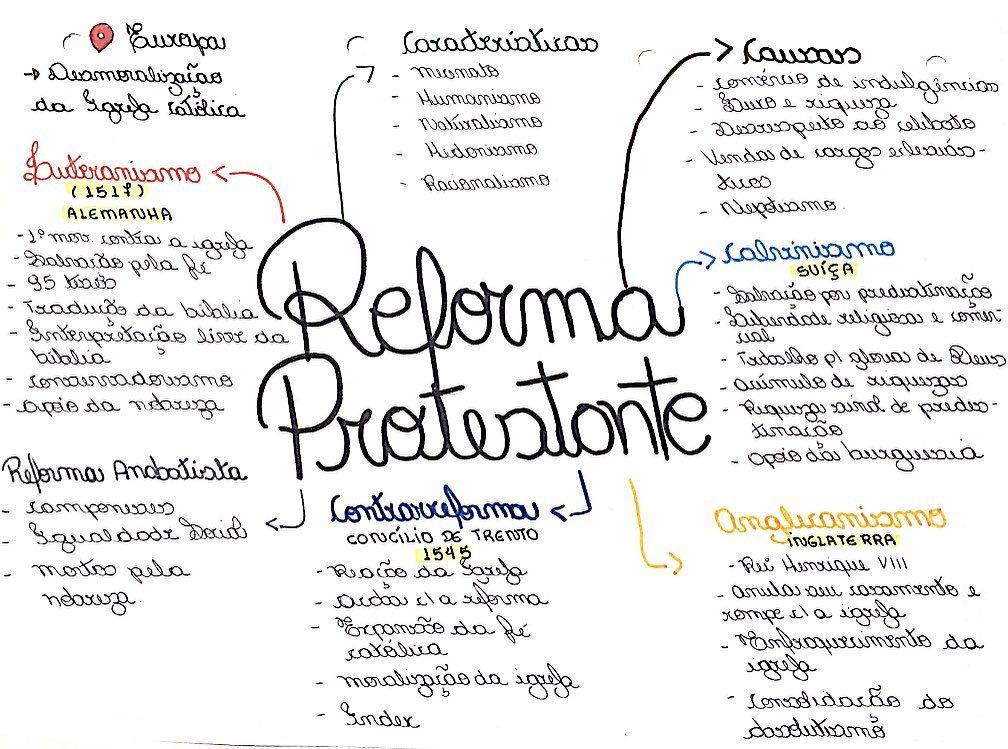 Europa
→ Desmoralização
da Igreja católica
Características
- Mecenato
- Humanismo
- Naturalismo
- Hedonismo
- Racionalismo
Causas
- comércio de indulgências
- Luxo e riqueza
- Desrespeito ao celibato
- Vendas de cargos eclesiás-
ticos
- Nepotismo
Luteranismo
(1517)
ALEMANHA
- 1º mov. contra a igreja
- Salvação pela fé
- 95 teses
- Tradução da bíblia
- Interpretação livre da
bíblia
- conservadorismo
- apoio da nobreza
Reforma
Protestante
Calvinismo
SUÍÇA
- Salvação por predestinação
- Liberdade religiosa e comer-
cial
- Trabalho p/ glória de Deus
- acúmulo de riquezas
- Riqueza sinal de predes-
tinação
- apoio da burguesia
Reforma Anabatista
- camponeses
- Igualdade Social
- mortos pela
nobreza.
Contrarreforma
CONCÍLIO DE TRENTO
1545
- Reação da Igreja
- acaba c/ a reforma
- Expansão da fé
católica
- moralização da igreja
- Index
Anglicanismo
INGLATERRA
- Rei Henrique VIII
- anula seu casamento e
rompe c/ a igreja
- Enfraquecimento da
igreja
- consolidação do
absolutismo